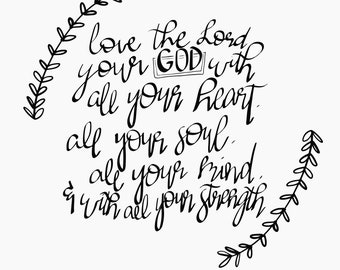 love the Lord
your GOD with
all your heart.
all your soul.
all your mind.
& with all your strength